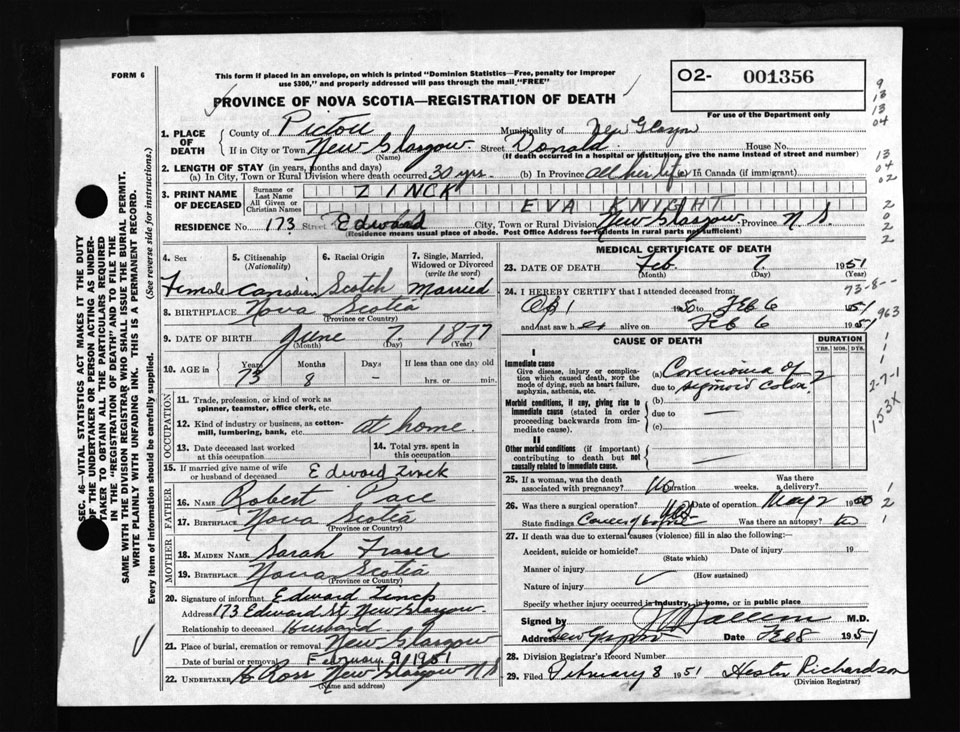 FORM 6
This form if placed in an envelope, on which is printed "Dominion Statistics—Free, penalty for improper
use $300," and properly addressed will pass through the mail "FREE"
O2- 001356
For use of the Department only
PROVINCE OF NOVA SCOTIA—REGISTRATION OF DEATH
1. PLACE OF DEATH
County of Pictou Municipality of New Glasgow
If in City or Town New Glasgow Street Donald House No.
(Name) (If death occurred in a hospital or institution, give the name instead of street and number)
2. LENGTH OF STAY (in years, months and days)
(a) In City, Town or Rural Division where death occurred 30 yrs. (b) In Province all her life (c) In Canada (if immigrant)
3. PRINT NAME OF DECEASED
Surname or Last Name ZINCK
All Given or Christian Names EVA KNIGHT
RESIDENCE No. 173 Street Edward City, Town or Rural Division New Glasgow Province N.S.
(Residence means usual place of abode. Post Office Address for residents in rural parts not sufficient)
4. Sex
Female
5. Citizenship (Nationality)
Canadian
6. Racial Origin
Scotch
7. Single, Married, Widowed or Divorced (write the word)
Married
8. BIRTHPLACE Nova Scotia
(Province or Country)
9. DATE OF BIRTH June 7. 1877
(Month) (Day) (Year)
10. AGE in Years Months Days If less than one day old
73 8 - hrs. or min.
OCCUPATION
11. Trade, profession, or kind of work as spinner, teamster, office clerk, etc.
12. Kind of industry or business, as cotton-mill, lumbering, bank, etc. at home
13. Date deceased last worked at this occupation
14. Total yrs. spent in this occupation
15. If married give name of wife or husband of deceased Edward Zinck
FATHER
16. NAME Robert Pace
17. BIRTHPLACE Nova Scotia
(Province or Country)
MOTHER
18. MAIDEN NAME Sarah Fraser
19. BIRTHPLACE Nova Scotia
(Province or Country)
20. Signature of informant Edward Zinck
Address 173 Edward St. New Glasgow
Relationship to deceased Husband
21. Place of burial, cremation or removal New Glasgow
Date of burial or removal February 9/1951
22. UNDERTAKER Ross New Glasgow N.S
(Name and address)
MEDICAL CERTIFICATE OF DEATH
23. DATE OF DEATH Feb. 7. 1951
(Month) (Day) (Year)
24. I HEREBY CERTIFY that I attended deceased from:
1950 to Feb 6 1951
and last saw her alive on Feb 6 1951
CAUSE OF DEATH
DURATION
YRS. MOS. DYS.
I
Immediate cause
Give disease, injury or complication which caused death, not the mode of dying, such as heart failure, asphyxia, asthenia, etc.
(a) Carcinoma of
due to sigmoid colon
Morbid conditions, if any, giving rise to immediate cause (stated in order proceeding backwards from immediate cause).
(b)
due to —
(c)
II
Other morbid conditions (if important) contributing to death but not causally related to immediate cause.
25. If a woman, was the death associated with pregnancy? No Duration weeks. Was there a delivery?
26. Was there a surgical operation? Date of operation May 2 1950
State findings Was there an autopsy? no
27. If death was due to external causes (violence) fill in also the following:
Accident, suicide or homicide? Date of injury 19
(State which)
Manner of injury
(How sustained)
Nature of injury
Specify whether injury occurred in industry, in home, or in public place
Signed by M.D.
Address New Glasgow Date Feb 8 1951
28. Division Registrar's Record Number
29. Filed February 8 1951 Hester Richardson
(Division Registrar)
SEC. 46-VITAL STATISTICS ACT MAKES IT THE DUTY
OF THE UNDERTAKER OR PERSON ACTING AS UNDER-
TAKER TO OBTAIN ALL THE PARTICULARS REQUIRED
IN THE "REGISTRATION OF DEATH" AND TO FILE THE
SAME WITH THE DIVISION REGISTRAR WHO SHALL ISSUE THE BURIAL PERMIT.
WRITE PLAINLY WITH UNFADING INK. THIS IS A PERMANENT RECORD.
Every item of information should be carefully supplied. (See reverse side for instructions.)
9
13
13
04
13
04
02
2
0
2
2
73-8--
963
1
1
1
2-7-1
153X
1
2
1